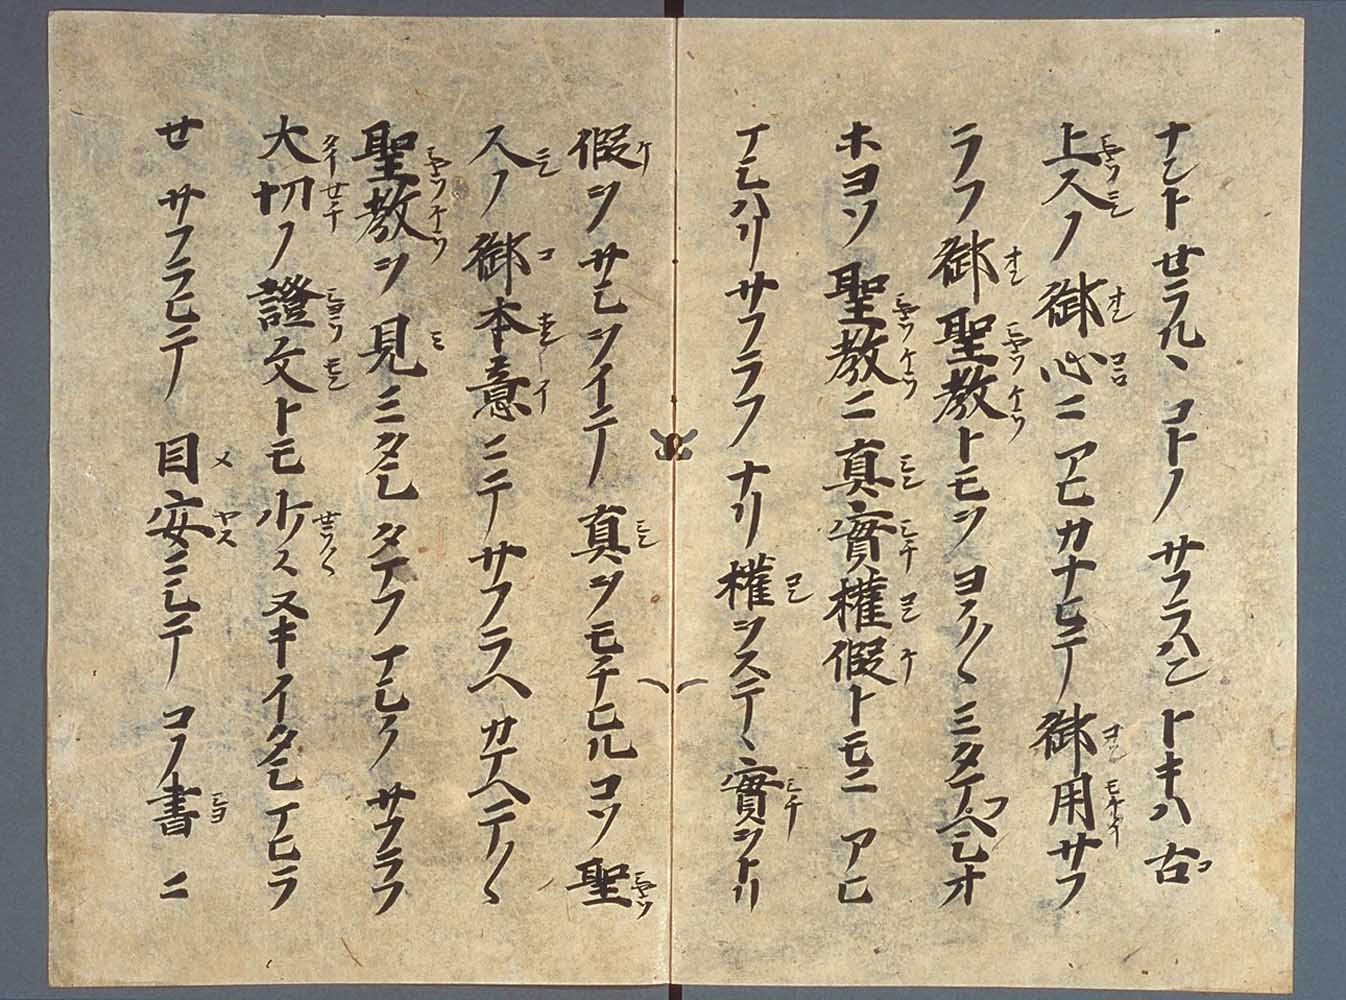 ナント セラルヽ コトノ サフラハン トキハ 古
上人ノ 御心ニ アヒカナヒテ 御用サフ
ラフ 御聖教トモヲ ヨク〱 ミタマフヘシ オ
ホヨソ 聖教ニ 真實權假トモニ アヒ
マシハリ サフラフ ナリ 權ヲステヽ 實ヲトリ
假ヲ サシヲイテ 真ヲモチヒルコソ 聖
人ノ 御本意ニテ サフラヘ カマヘテ〱
聖教ヲ 見ミタシ タマフマシク サフラフ
大切ノ 證文トモ 少々 ヌキイタシマヒラ
セ サフラヒテ 目安ニシテ コノ書ニ